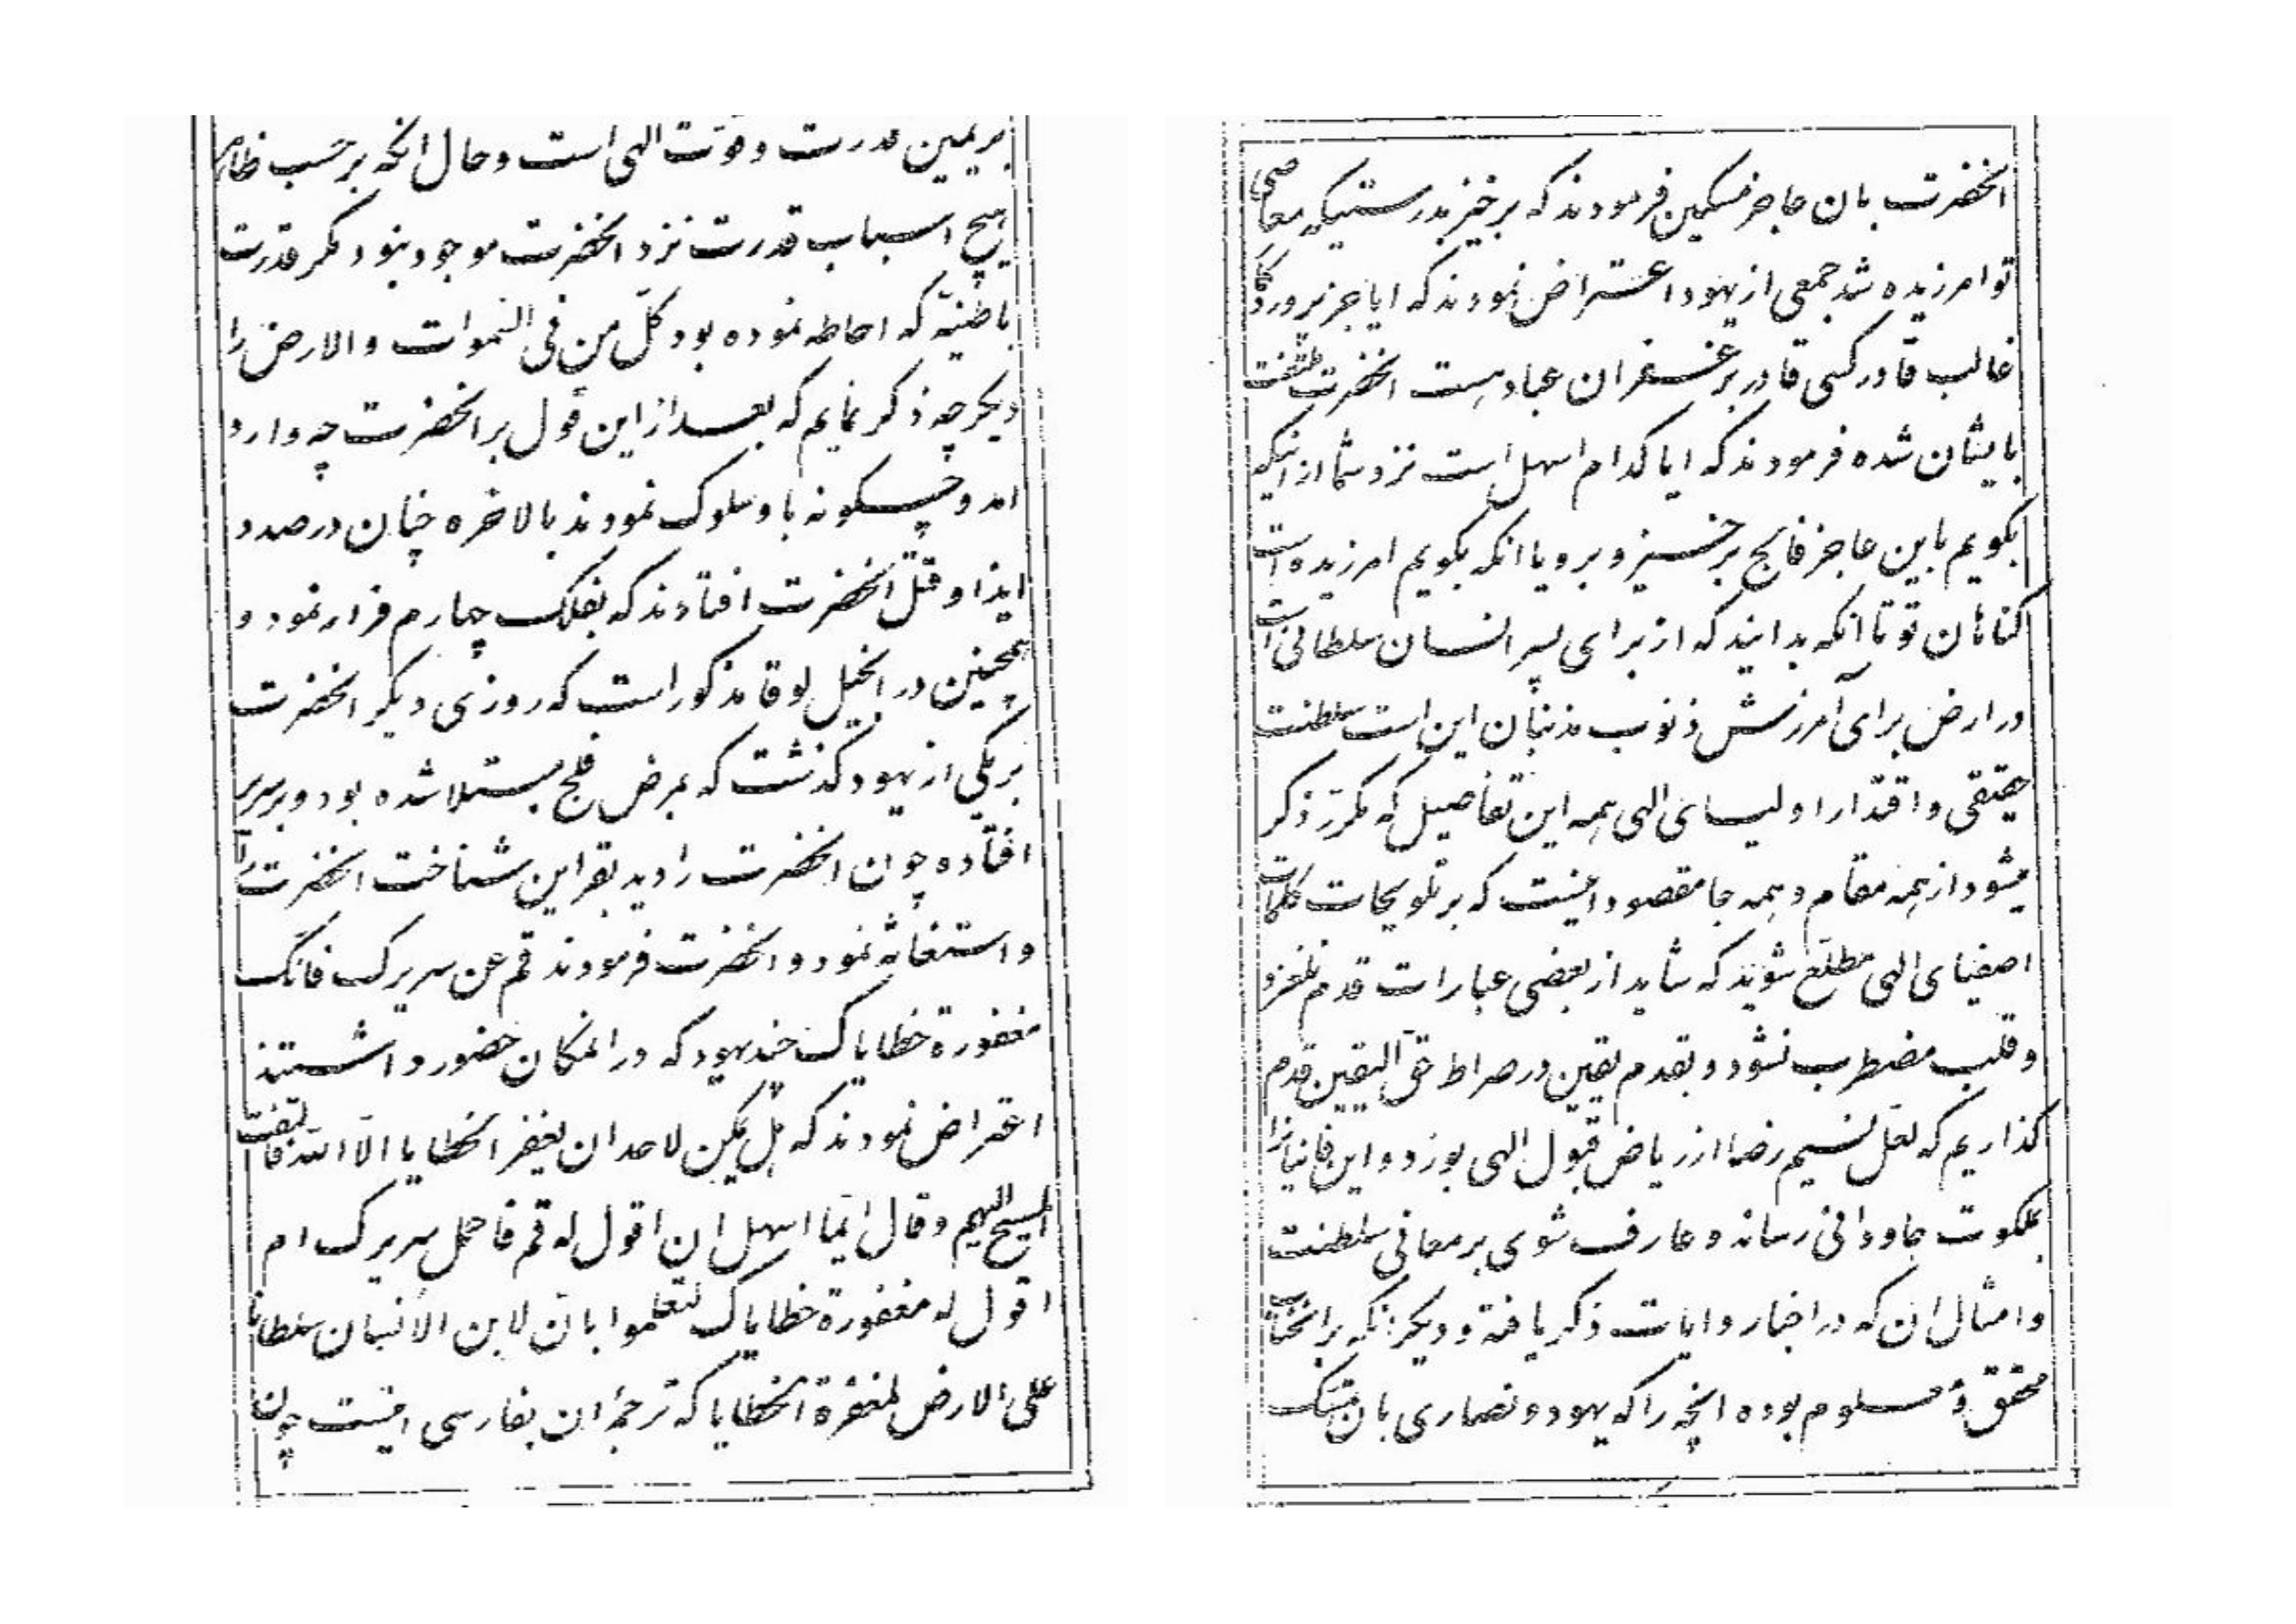 بر یمین قدرت و قوّت الهی است و حال انکه بر حسب ظاهر
هیچ اسباب قدرت نزد انحضرت موجود نبود مگر قدرت
باطنیّه که احاطه نموده بود کلّ من فی السّموات والارض را
دیگر چه ذکر نمایم که بعد از این قول بر انحضرت چه وارد
امد و چگونه با او سلوک نمودند بالاخره چنان در صدد
ایذا و قتل انحضرت افتادند که بفلک چهارم فرار نمود و
همچنین در انجیل لوقا مذکور است که روزی دیگر انحضرت
بر یکی از یهود گذشت که بمرض فلج مبتلا شده بود و بر سریر
افتاده چون انحضرت را دید بقراین شناخت انحضرت را
و استغاثه نمود و انحضرت فرمودند قم عن سریرک فانّک
مغفورة خطایاک چند یهود که در انمکان حضور داشتند
اعتراض نمودند که هل یمکن لاحد ان یغفر الخطایا الّا اللّه فالتفت
المسیح الیهم و قال ایّما اسهل ان اقول له قم فاحمل سریرک ام
اقول له مغفورة خطایاک لتعلموا بانّ لابن الانسان سلطانا
علی الارض لمغفرة الخطایا که ترجمهٔ ان بفارسی اینست چون
انحضرت بان عاجز مسکین فرمودند که برخیز بدرستیکه معاصی
تو امرزیده شد جمعی از یهود اعتراض نمودند که ایا جز پروردگار
غالب قادر کسی قادر بر غفران عباد هست انحضرت ملتفت
بایشان شده فرمودند که ایا کدام اسهل است نزد شما از اینکه
بگویم باین عاجز فالج برخیز و برو یا انکه بگویم امرزیده است
گناهان تو تا انکه بدانید که از برای پسر انسان سلطانی است
در ارض برای آمرزش ذنوب مذنبان این است سلطنت
حقیقی و اقتدار اولیای الهی همه این تفاصیل که مکرّر ذکر
میشود از همه مقام و همه جا مقصود اینست که بر تلویحات کلمات
اصفیای الهی مطّلع شوید که شاید از بعضی عبارات قدم نلغزد
و قلب مضطرب نشود و بقدم یقین در صراط حقّ الیقین قدم
گذاریم که لعلّ نسیم رضا از ریاض قبول الهی بوزد و این فانیانرا
بملکوت جاودانی رساند و عارف شوی بر معانی سلطنت
و امثال ان که در اخبار و ایات ذکر یافته و دیگر انکه بر انجناب
محقق و معلوم بوده انچه را که یهود و نصاری بان تمسّک